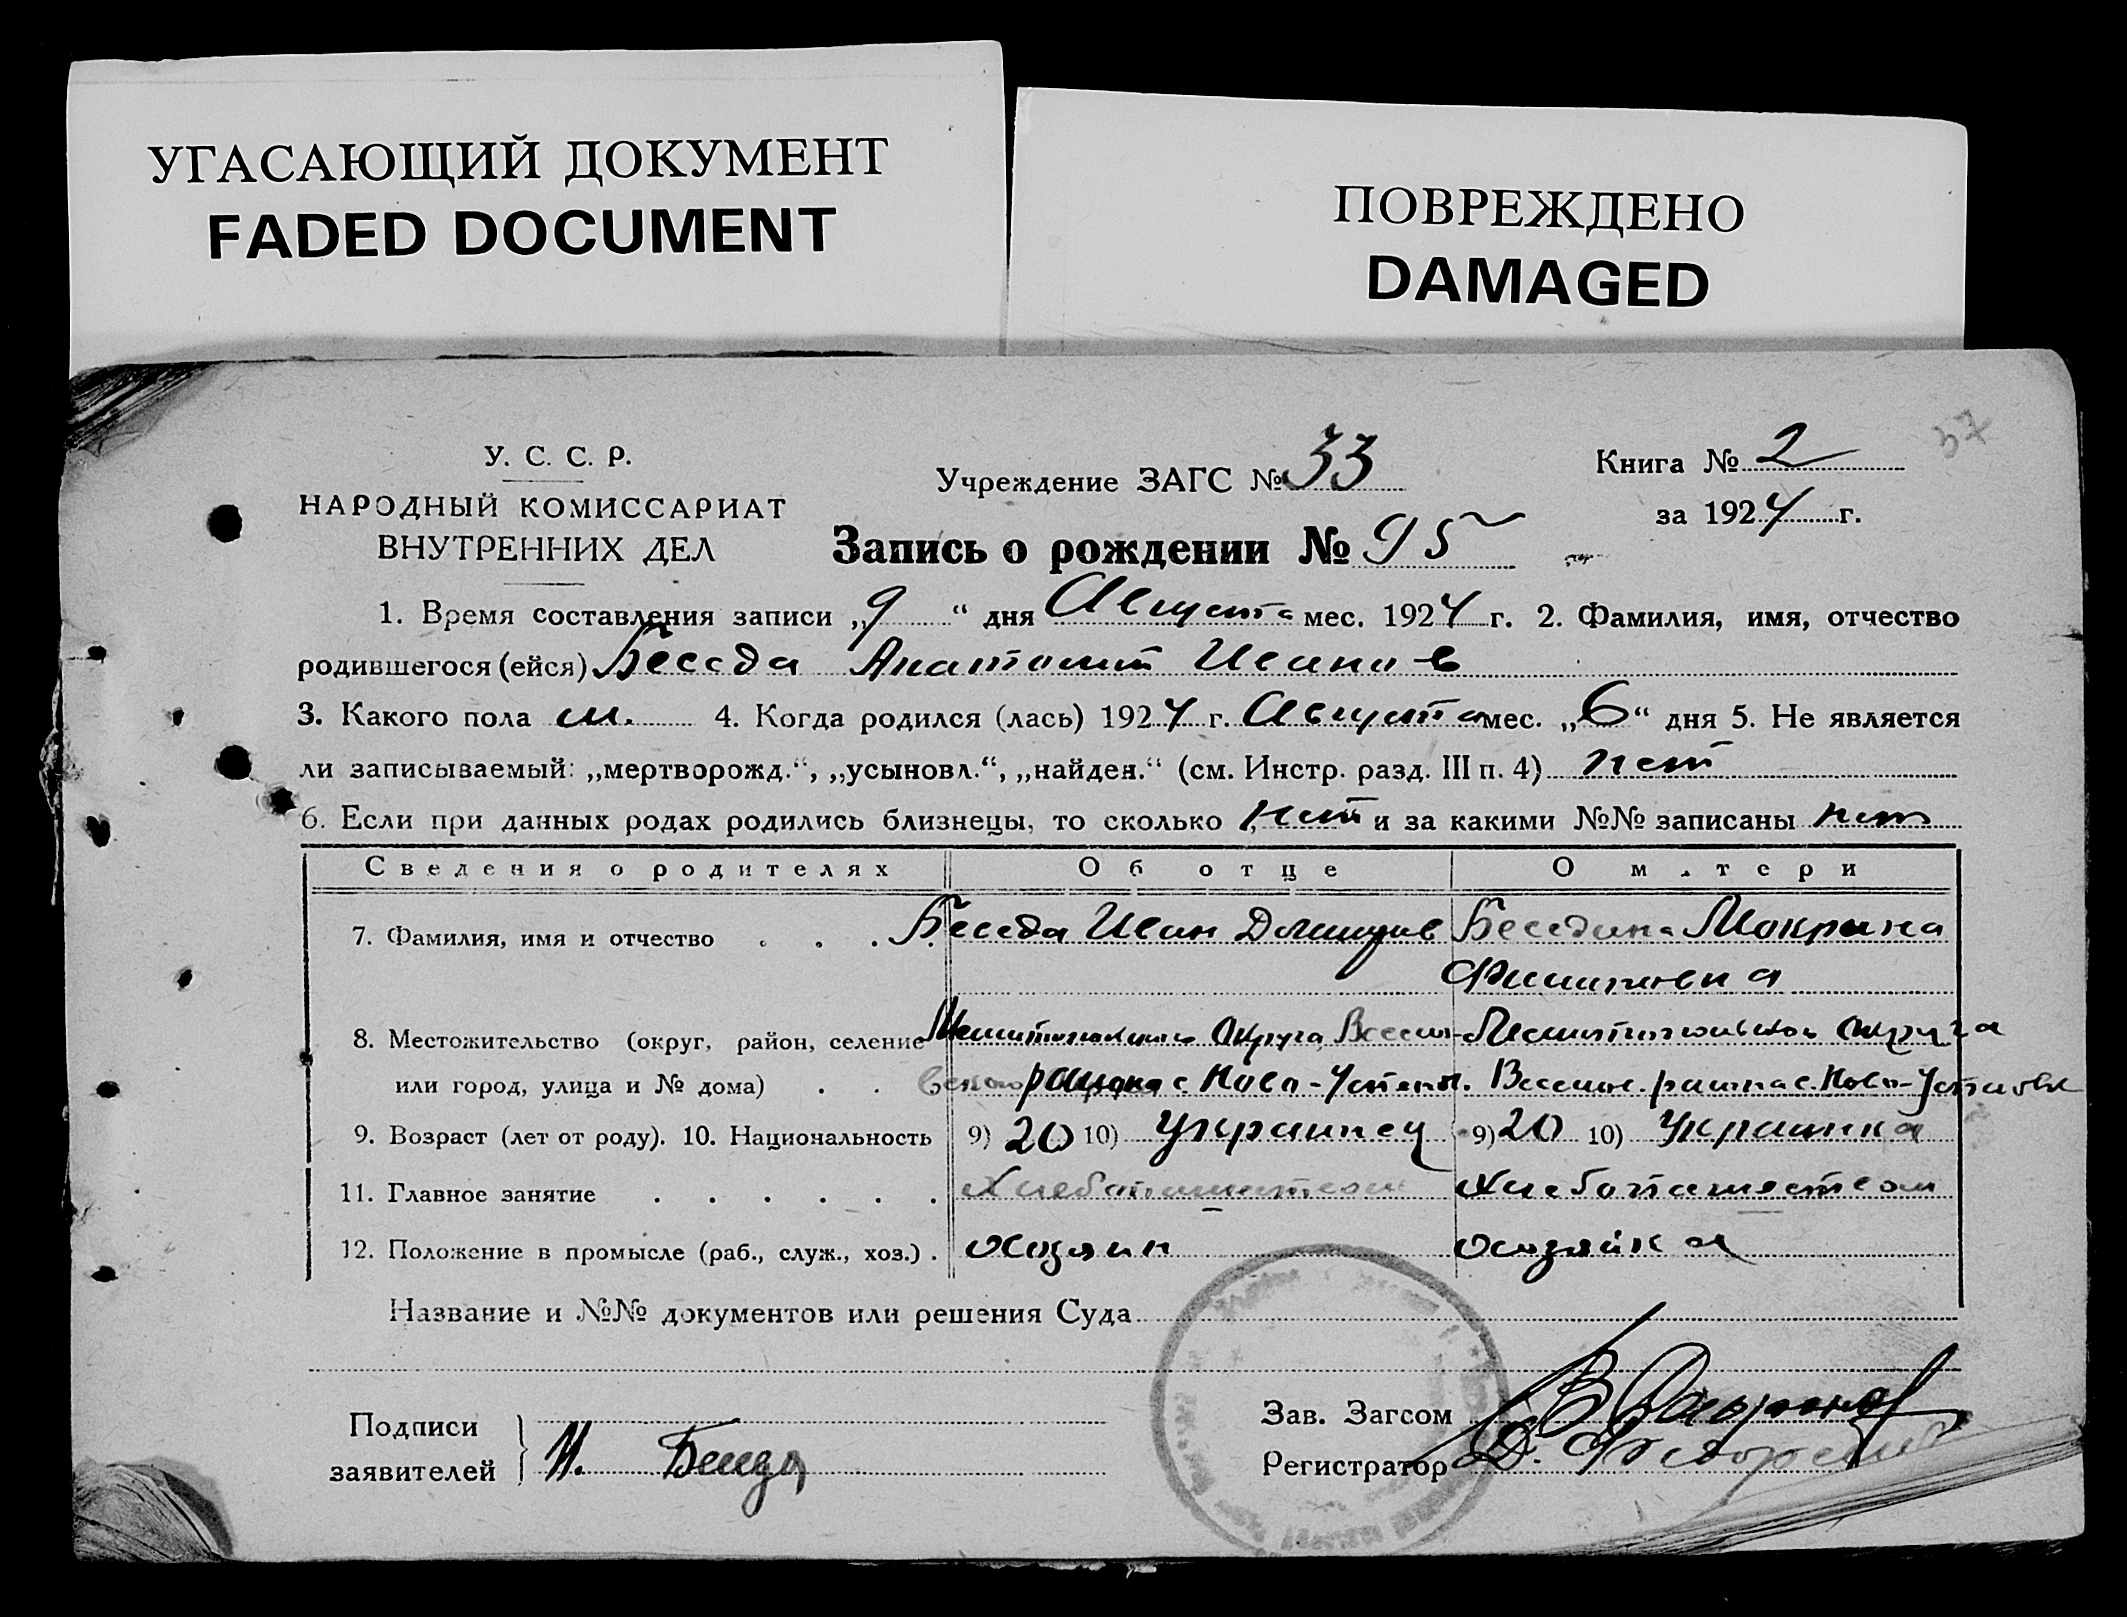 УГАСАЮЩИЙ ДОКУМЕНТ
FADED DOCUMENT
ПОВРЕЖДЕНО
DAMAGED
37
У. С. С. Р.
НАРОДНЫЙ КОМИССАРИАТ
ВНУТРЕННИХ ДЕЛ
Учреждение ЗАГС № 33
Книга № 2
за 1924 г.
Запись о рождении № 95
1. Время составления записи „9“ дня Августа мес. 1924 г. 2. Фамилия, имя, отчество
родившегося (ейся) Беседа Анатолий Иванов
3. Какого пола м. 4. Когда родился (лась) 1924 г. Августа мес. „6“ дня 5. Не является
ли записываемый: „мертворожд.“, „усыновл.“, „найден.“ (см. Инстр. разд. III п. 4) нет
6. Если при данных родах родились близнецы, то сколько нет и за какими №№ записаны нет
Сведения о родителях Об отце О матери
7. Фамилия, имя и отчество . . . Беседа Иван Беседина Мокрина
Филиповна
8. Местожительство (округ, район, селение Мелитопольского Округа Весело- Мелитопольского Округа
или город, улица и № дома) . . вского района с. Ново-Успен. Веселов. района с. Ново-
9. Возраст (лет от роду). 10. Национальность 9) 20 10) Украинец 9) 20 10) Украинка
11. Главное занятие . . . . . . Хлебопашеством Хлебопашеством
12. Положение в промысле (раб., служ., хоз.) . Хозяин Хозяйка
Название и №№ документов или решения Суда
Подписи
заявителей И. Беседа
Зав. Загсом
Регистратор Д.